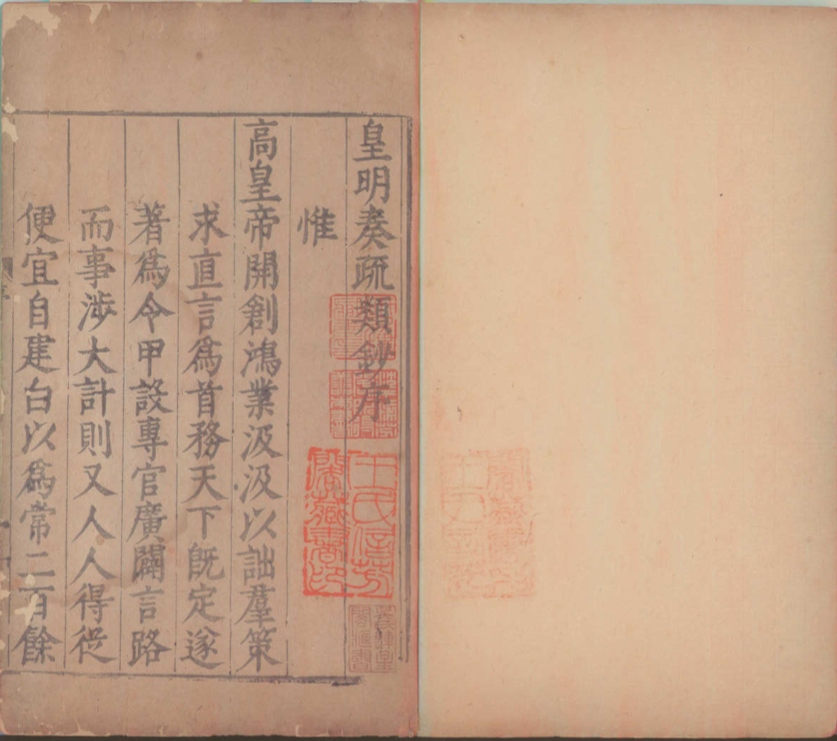 皇明奏疏類鈔序
惟
高皇帝開創鴻業汲汲以詘羣策
求直言爲首務天下旣定遂
著爲令甲設專官廣闢言路
而事涉大計則又人人得從
便宜自建白以爲常二百餘
王氏信芳閣藏書印